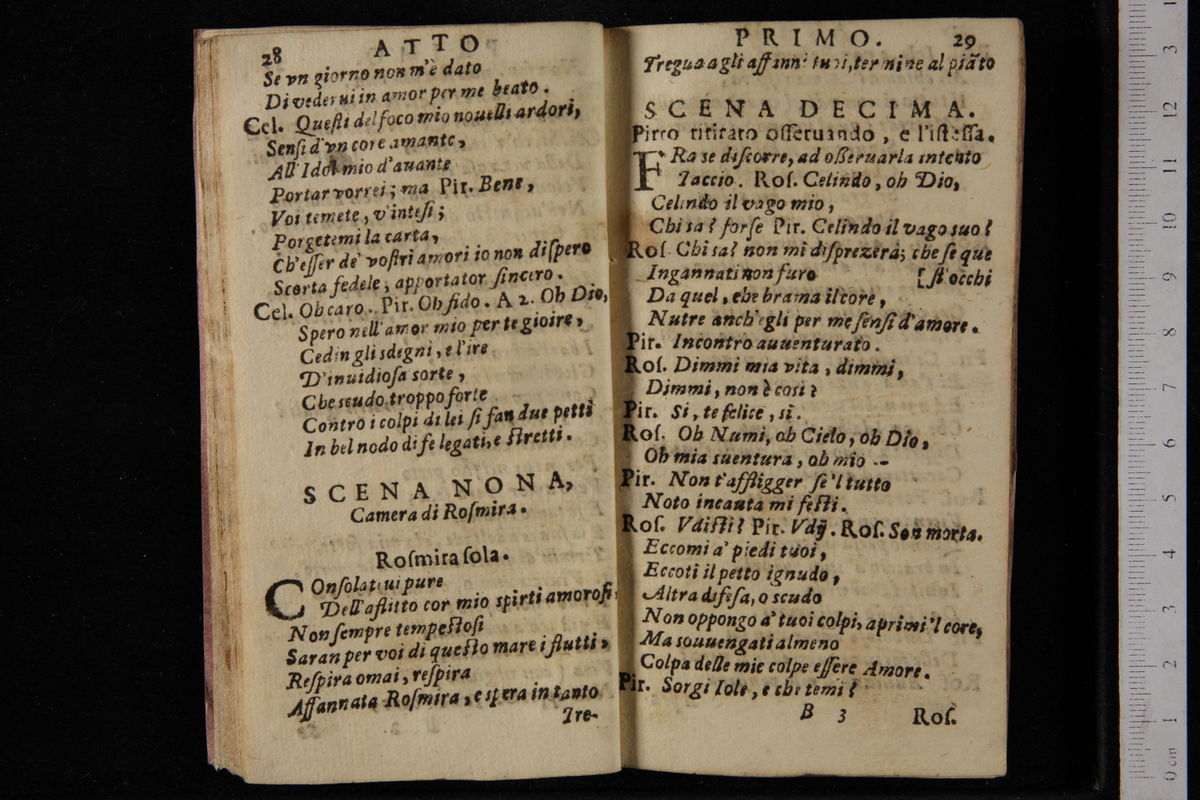 28 ATTO
Se vn giorno non m'è dato
Di vederui in amor per me beato.
Cel. Questi del foco mio nouelli ardori,
Sensi d'vn core amante,
All'Idol mio d'auante
Portar vorrei; ma Pir. Bene,
Voi temete, v'intesi;
Porgetemi la carta,
Ch'esser de' vostri amori io non dispero
Scorta fedele, apportator sincero.
Cel. Oh caro. Pir. Oh fido. A 2. Oh Dio,
Spero nell'amor mio per te gioire,
Cedin gli sdegni, e l'ire
D'inuidiosa sorte,
Che scudo troppo forte
Contro i colpi di lei si fan due petti
In bel nodo di fe legati, e stretti.
SCENA NONA,
Camera di Rosmira.
Rosmira sola.
COnsolateui pure
Dell'aflitto cor mio spirti amorosi,
Non sempre tempestosi
Saran per voi di questo mare i flutti,
Respira omai, respira
Affannata Rosmira, e spera in tanto
Tre-
PRIMO. 29
Tregua agli affanni tuoi, termine al piãto
SCENA DECIMA.
Pirro ritirato osseruando, e l'istessa.
FRa se discorre, ad osseruarla intento
Taccio. Ros. Celindo, oh Dio,
Celindo il vago mio,
Chi sa? forse Pir. Celindo il vago suo?
Ros. Chi sa? non mi disprezerà; che se que
Ingannati non furo [st'occhi
Da quel, che brama il core,
Nutre anch'egli per me sensi d'amore.
Pir. Incontro auuenturato.
Ros. Dimmi mia vita, dimmi,
Dimmi, non è così?
Pir. Si, te felice, sì.
Ros. Oh Numi, oh Cielo, oh Dio,
Oh mia suentura, oh mio --
Pir. Non t'affligger se'l tutto
Noto incauta mi festi.
Ros. Vdisti? Pir. Vdij. Ros. Son morta.
Eccomi a' piedi tuoi,
Eccoti il petto ignudo,
Altra difesa, o scudo
Non oppongo a' tuoi colpi, aprimi 'l core,
Ma souuengati almeno
Colpa delle mie colpe essere Amore.
Pir. Sorgi Iole, e che temi?
B 3 Ros.